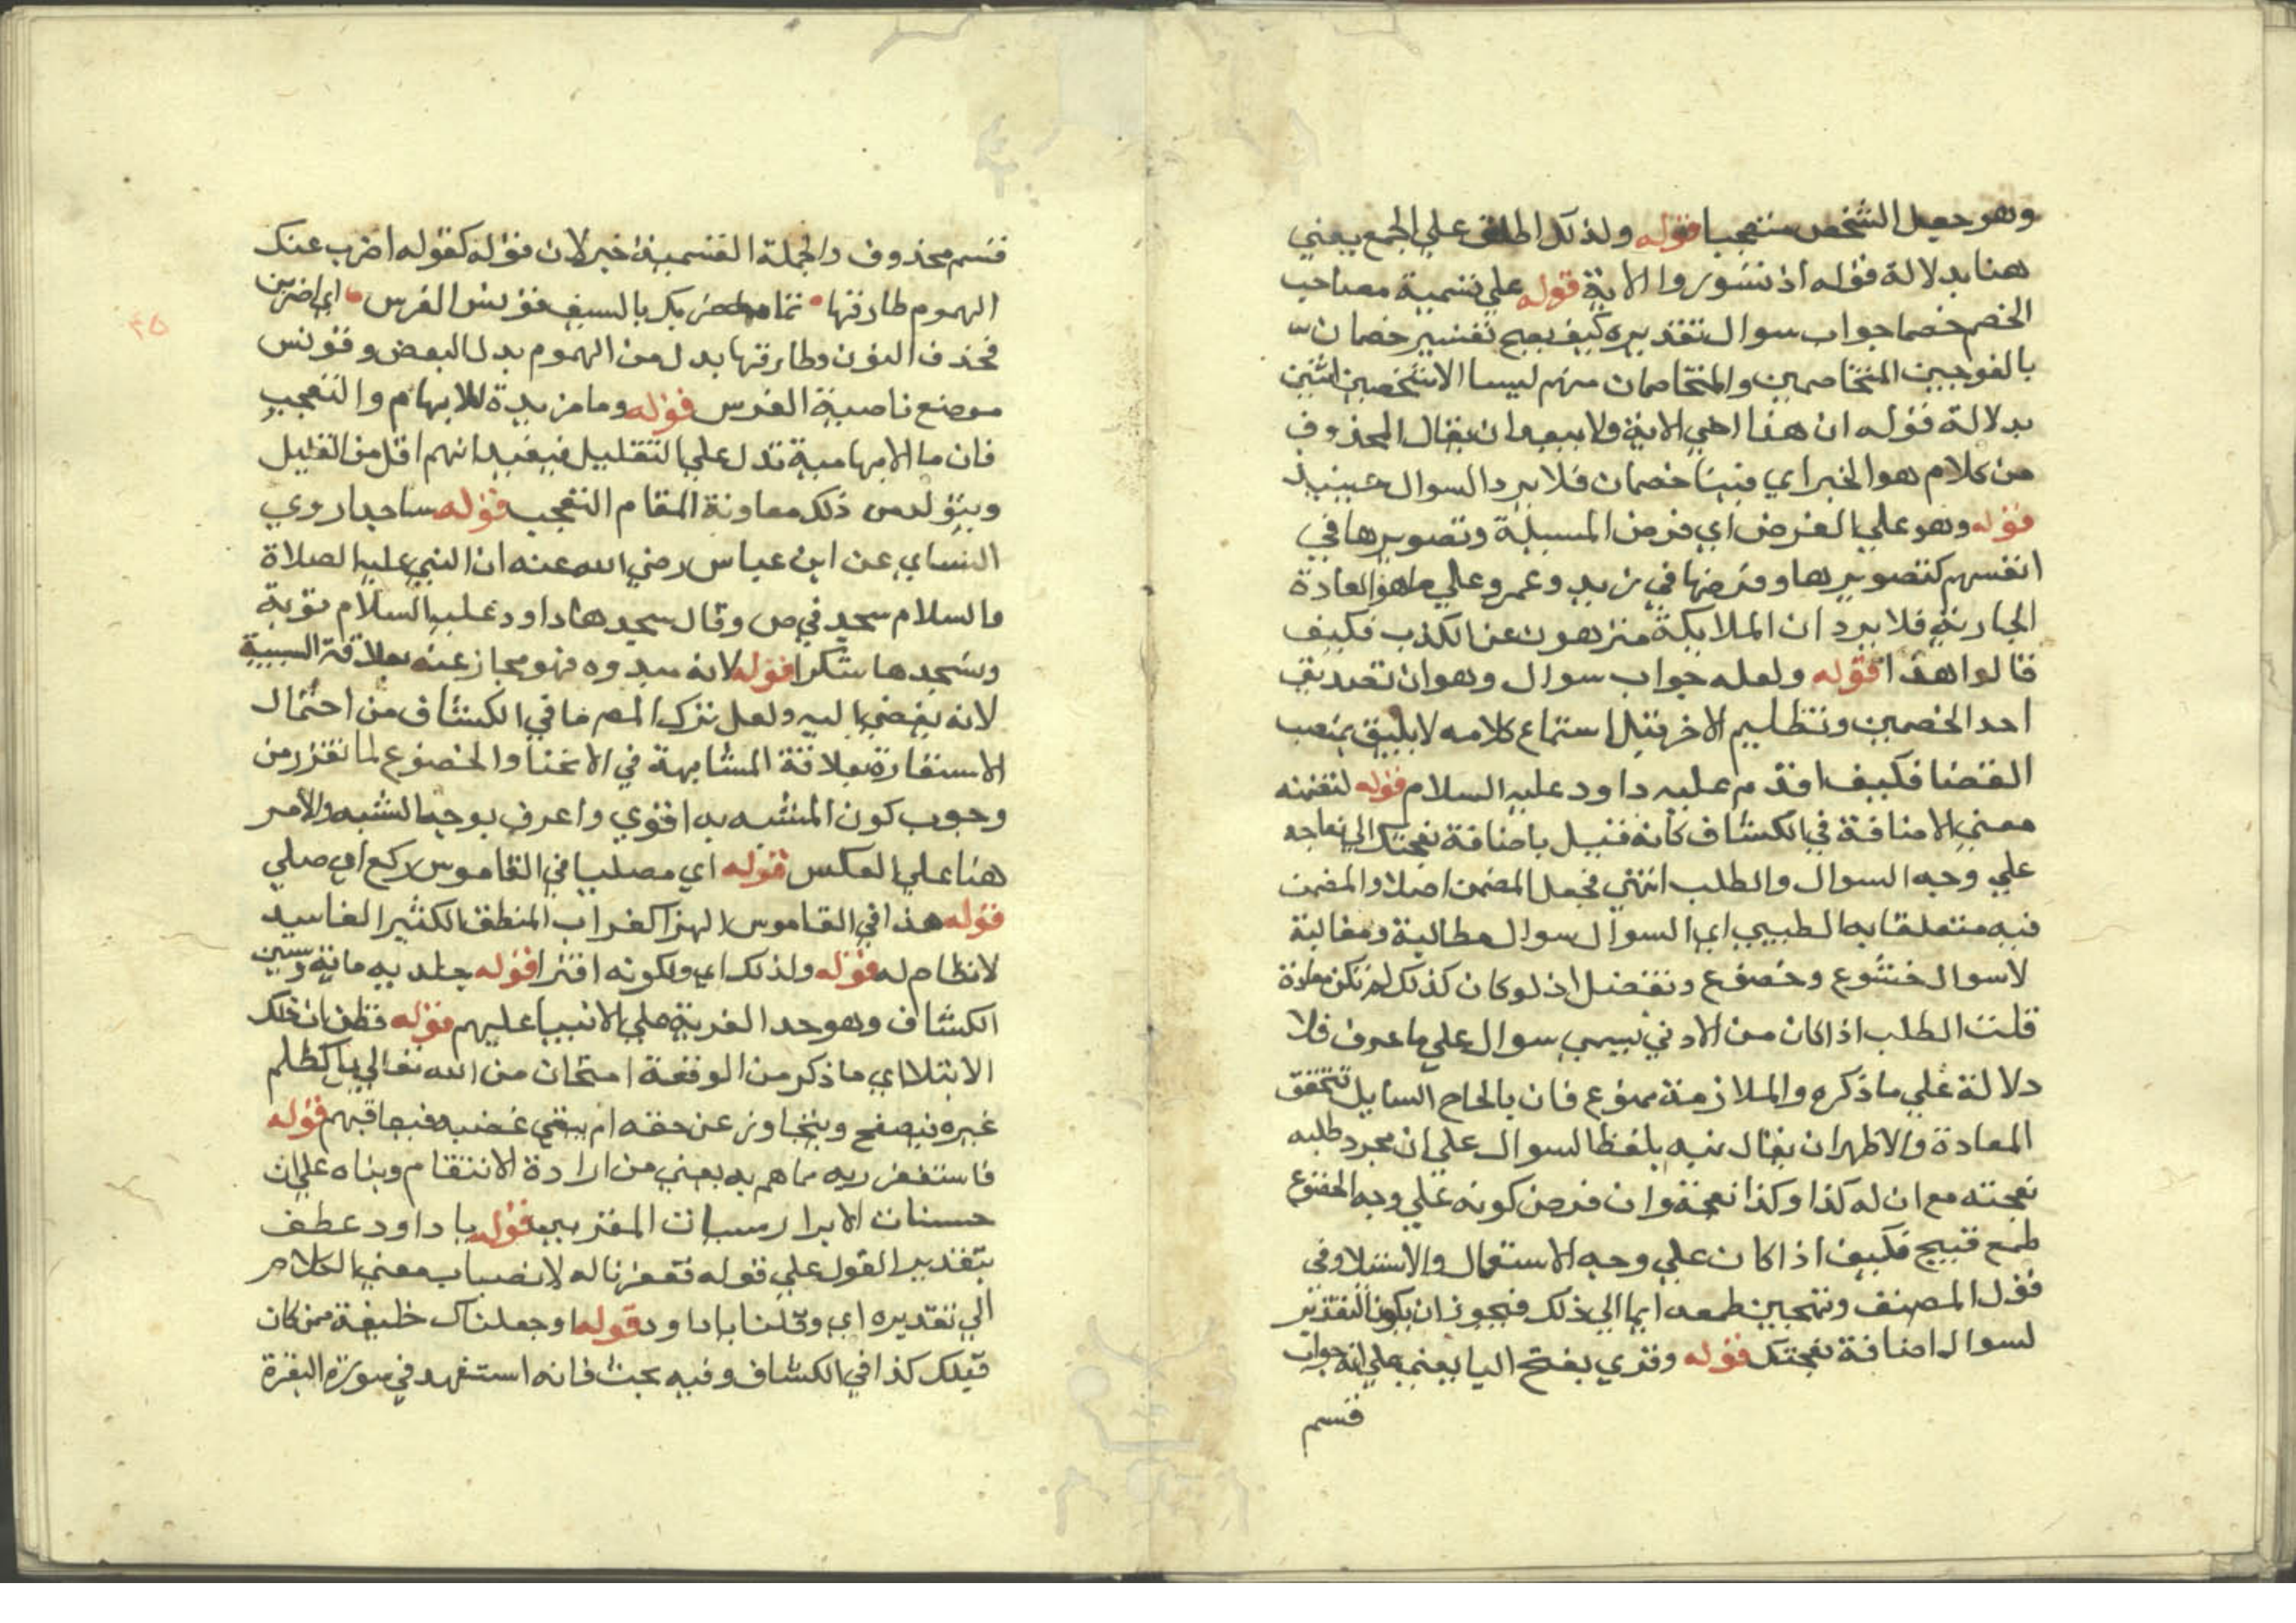 وهو جعل الشخص متعجبا قوله ولذلك اطلق علي الجمع يعني
هنا بدلالة قوله اذ تسوروا الاية قوله علي تسمية مصاحب
الخصم خصما جواب سوال تقديره كيف يصح تفسير خصمان
بالفوجين المتخاصمين والمتخاصمان منهم ليسا الا شخصين اثنين
بدلالة قوله ان هذا اخي الاية ولا يبعد ان يقال المحذوف
من كلام هو الخبر اي فينا خصمان فلا يرد السوال حينيذ
قوله وهو علي الفرض اي فرض المسيلة وتصويرها في
انفسهم كتصويرها وفرضها في زيد وعمرو علي ما هو العادة
الجارية فلا يرد ان الملايكة منزهون عن الكذب فكيف
قالوا هذا قوله ولعله جواب سوال وهو ان تصديق
احد الخصمين وتظليم الاخر قبل استماع كلامه لا يليق بمنصب
القضا فكيف اقدم عليه داود عليه السلام قوله لتضمنه
معني الاضافة في الكشاف كانه قيل باضافة نعجتك الي نعاجه
علي وجه السوال والطلب انتهي فجعل المضمن اصلا والمضمن
فيه متعلقا به الطيبي اي السوال سوال مطالبة ومغالبة
لا سوال خشوع وخضوع وتفضل اذ لو كان كذلك لم تكن معازة
قلت الطلب اذا كان من الادني يسمي سوال علي ما عرف فلا
دلالة علي ما ذكره والملازمة ممنوع فان بالحاح السايل تتحقق
المعادة والاظهر ان يقال نبه بلفظ السوال علي ان مجرد طلبه
نعجته مع ان له كذا وكذا نعجة وان فرض كونه علي وجه الخضوع
طمع قبيح فكيف اذا كان علي وجه الاستعمال والاستيلا وفي
قول المصنف وتهجين طمعه ايما الي ذلك فيجوز ان يكون التقدير
لسوال اضافة نعجتك قوله وقري بفتح اليا يعني علي انه جواب
قسم
قسم محذوف والجملة القسمية خبر لان قوله كقوله اضرب عنك
الهموم طارقها ضربك بالسيف قونس الفرس اي اضربن
فحذف النون وطارقها بدل من الهموم بدل البعض وقونس
موضع ناصية الفرس قوله وما مزيدة للابهام والتعجب
فان ما الابهامية تدل علي التقليل فيفيد انهم اقل من القليل
ويتولد من ذلك معاونة المقام التعجب قوله ساجدا روي
النساي عن ابن عباس رضي الله عنه ان النبي عليه الصلاة
والسلام سجد في ص وقال سجدها داود عليه السلام توبة
ونسجدها شكرا قوله لانه مبدوه فهو مجاز عنه بعلاقة السببية
لانه يفضي اليه ولعل ترك المص ما في الكشاف من احتمال
الاستعارة بعلاقة المشابهة في الانحنا والخضوع لما تقرر من
وجوب كون المشبه به اقوي واعرف بوجه الشبه والامر
هنا علي العكس قوله اي مصليا في القاموس ركع اي صلي
قوله هذا في القاموس الهرا كغراب المنطق الكثير الفاسد
لا نظام له قوله ولذلك اي ولكونه افترا قوله جلد به ماية وستين
الكشاف وهو حد الفرية علي الانبيا عليهم قوله فظن ان ذلك
الابتلا اي ما ذكر من الوقعة امتحان من الله تعالي بانه كظلم
غيره فيصفح ويتجاوز عن حقه ام يبقي غضبه فيعاقبهم قوله
فاستغفر ربه مما هم به يعني من ارادة الانتقام وبناه علي ان
حسنات الابرار سيات المقربين قوله يا داود عطف
بتقدير القول علي قوله فغفرنا له لانصباب معني الكلام
الي تقديره اي وقلنا يا داود قوله او جعلناك خليفة ممن كان
قبلك كذا في الكشاف وفيه بحث فانه استشهد في سورة البقرة